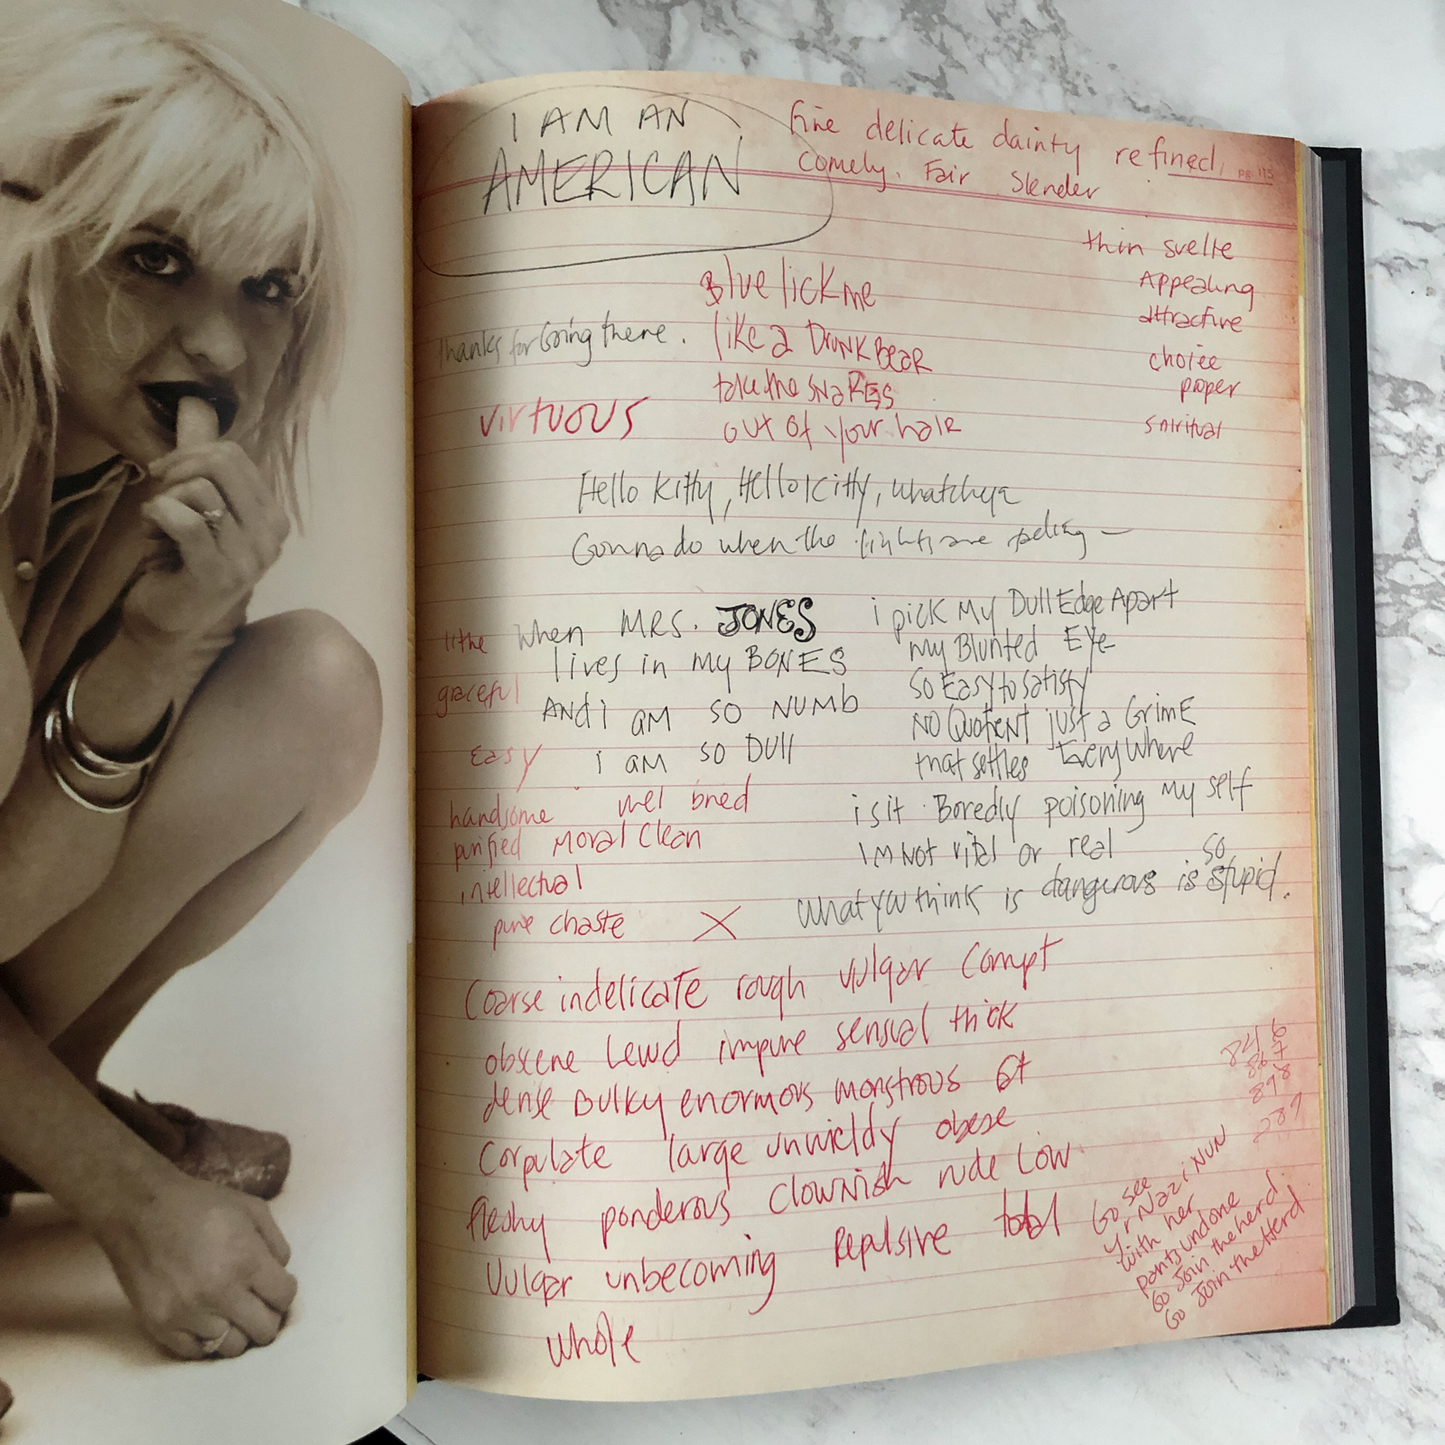 I AM AN
AMERICAN
fine delicate dainty refined, pg. 115
comely. Fair Slender
thin svelte
Appealing
attractive
choice
proper
spiritual
Blue lick me
like a DRUNK BEAR
take the SNAREs
out of your hair
Thanks for Going there.
virtuous
Hello Kitty, Hello Kitty, whatchya
Gonna do when the lights are
lithe
graceful
Easy
When MRS. JONES
lives in my BONES
ANd i am so NUMb
i am so DUll
i pick My Dull Edge Apart
my Blunted EYe
so Easy to satisfy
NO QuotieNT just a GrimE
that settles EveryWhere
i sit Boredly poisoning My self
I'm Not vital or real
What you think is dangerous is so stupid.
handsome well bred
purified Moral Clean
intellectual
pure chaste X
Coarse indelicate rough vulgar Corrupt
obscene Lewd impure sensual thick
dense Bulky enormous monstrous fat
Corpulate large unwieldy obese
fleshy ponderous Clownish rude Low
Vulgar unbecoming Repulsive total
whole
289
Go see
yr Nazi NUN
with her
pants undone
Go Join the herd.
Go Join the Herd